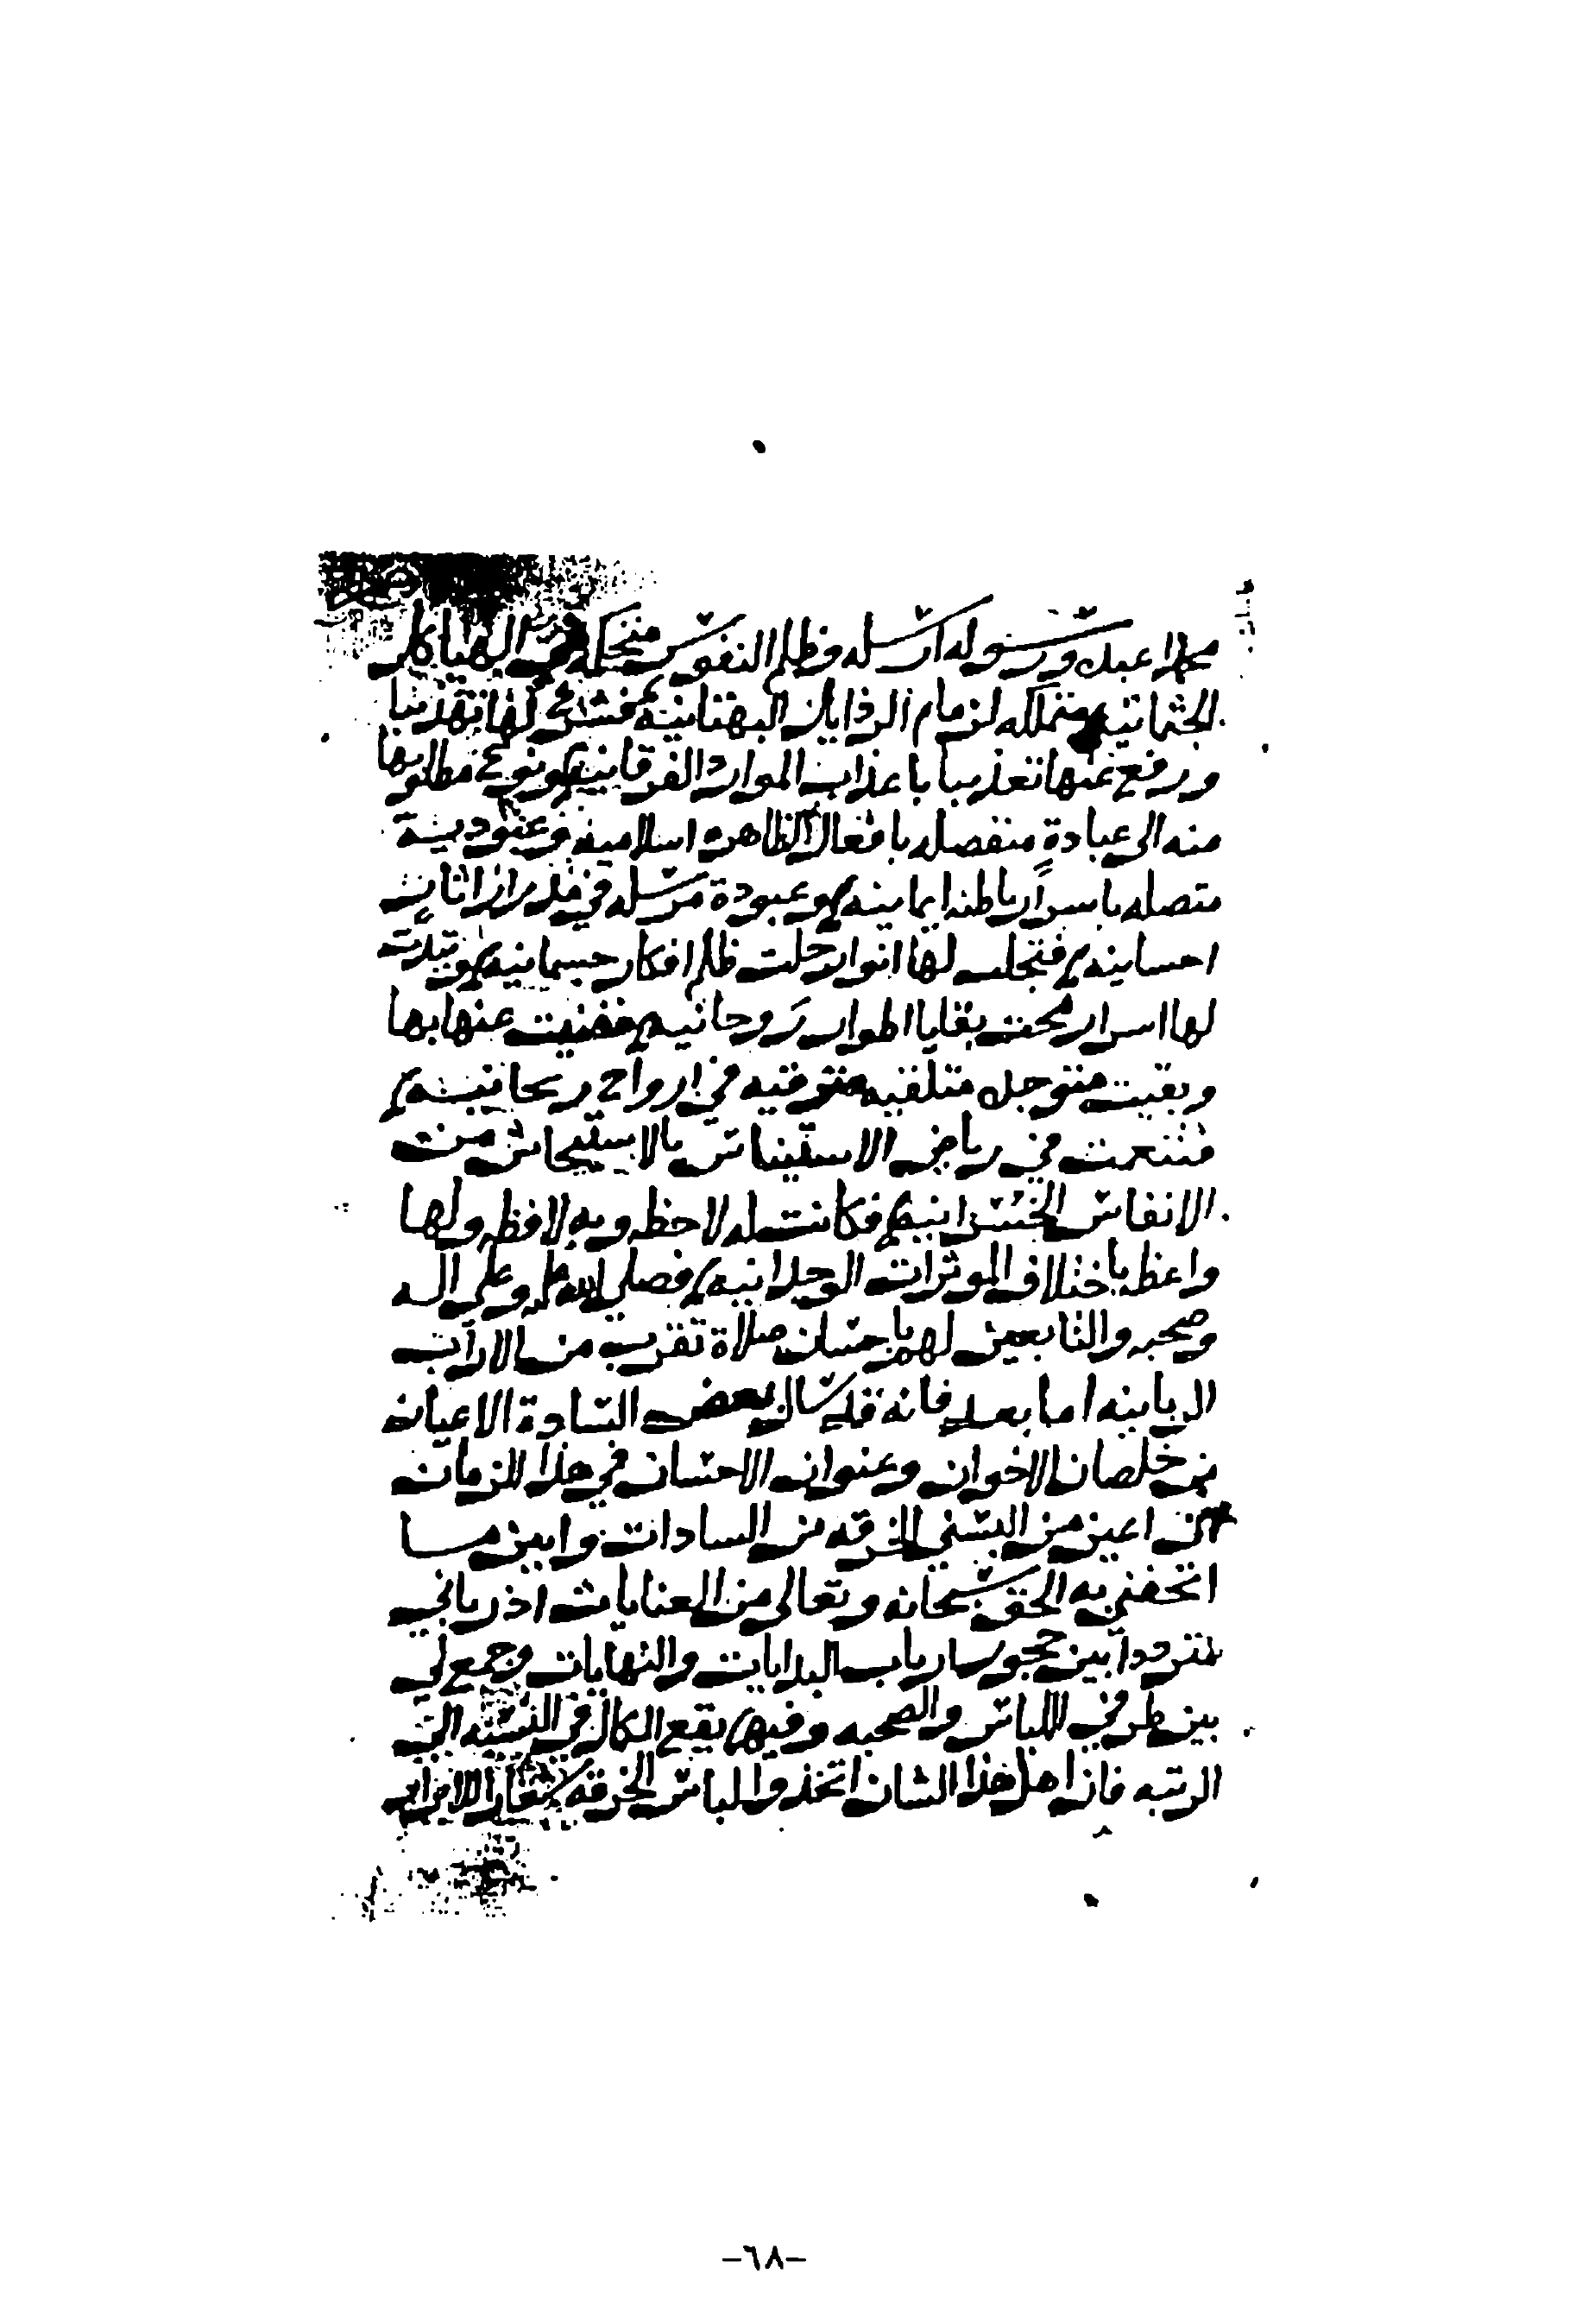 محمدا عبده ورسوله ارسله وظلم النفوس متحكمة في الهياكل
الجثمانيه متملكه لزمام الرذايل البهتانيه فشرع لها تهذيبا
ورفع عنها تعذيبا باعذاب الموارد الفرقانيه ونوع مطلوبها
منه الى عبادة منفصله بافعال ظاهرة اسلاميه وعبودية
متصله باسرار باطنه ايمانيه وعبودة مرسله في
احسانيه فتجلت لها انوار جلت ظلم افكار جسمانيه وتبدت
لها اسرار محت بقايا اطوار روحانيه ففنيت عنها بها
وبقيت متوجه متلقيه مترقيه في ارواح ريحانيه
فتنعمت في رياض الاستيناس بالاستيحاش من
الانفاس الخسرانيه فكانت له لاحظه وبه لافظه ولها
واعظه باختلاف الموثرات الوجدانيه فصلى الله عليه وعلى اله
وصحبه والتابعين لهم باحسان صلاة تقرب من الاداب
الربانيه اما بعد فانه قد سال بعض السادة الاعيان
من خلصان الاخوان وعنوان الاحسان في هذا الزمان
ان اعين من البسني الخرقه من السادات وابين مــا
اتحفني به الحق سبحانه وتعالى من العنايات اذ رباني
مترددا بين حجور ارباب البدايات والنهايات وجمع لي
بين طرفي اللباس والصحبه وفيهما يقع الكمال في النسبه الى
الرتبه فان اهل هذا الشان اتخذوا لباس الخرقه شعارا
-٦٨-